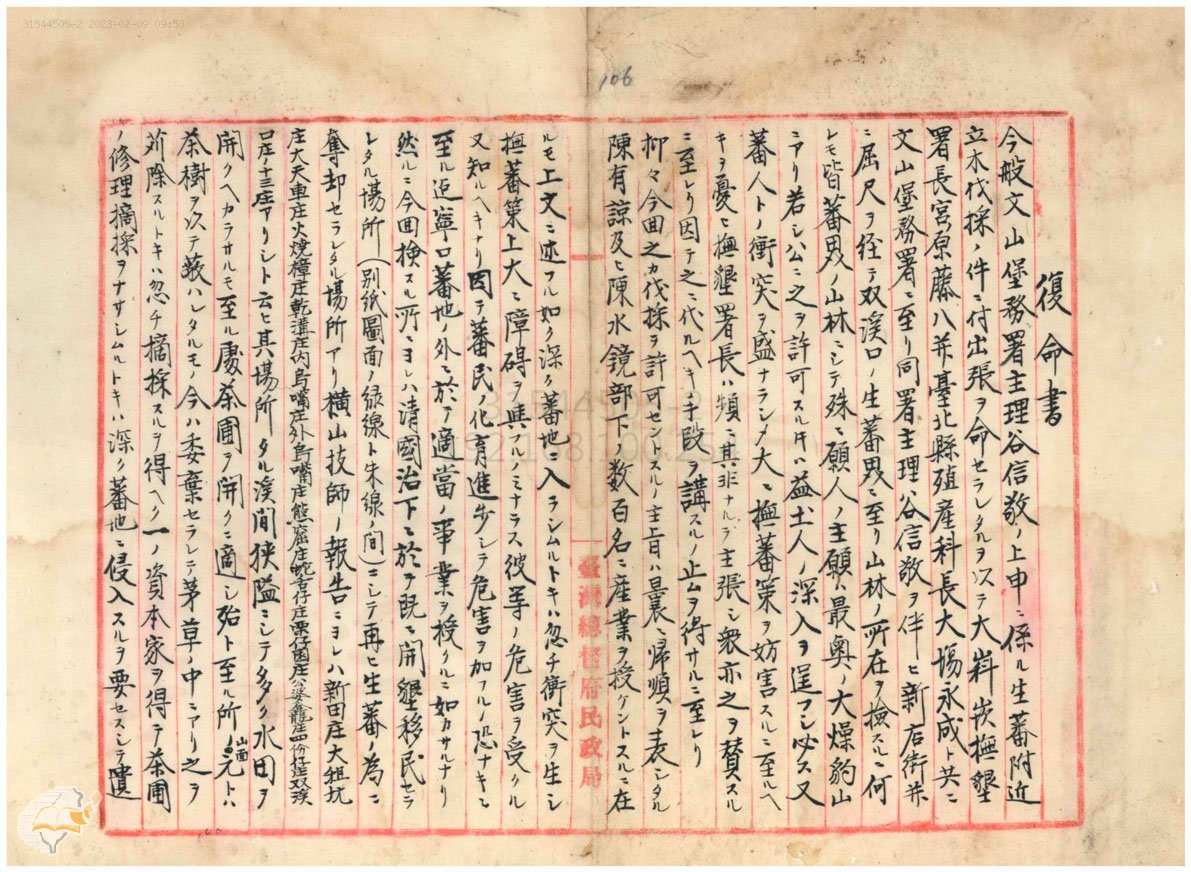 31544506-2 2023-02-09 09:58
106
復命書
今般文山堡務署主理谷信敬ノ上申ニ係ル生蕃附近
立木伐採ノ件ニ付出張ヲ命セラレタルヲ以テ大嵙崁撫墾
署長宮原藤八并臺北縣殖産科長大場永成ト共ニ
文山堡務署ニ至リ同署主理谷信敬ヲ伴ヒ新店街并
ニ屈尺ヲ経テ双溪口ノ生蕃界ニ至リ山林ノ所在ヲ撿スルニ何
レモ皆蕃界ノ山林ニシテ殊ニ願人ノ主願ハ最奥ノ大燥豹山
ニアリ若シ公ニ之ヲ許可スル片ハ益土人ノ深入ヲ逞フシ必ス又
蕃人トノ衝突ヲ盛ナラシメ大ニ撫蕃策ヲ妨害スルニ至ルヘ
キヲ憂ヒ撫墾署長ハ頻ニ其非ナルヲ主張シ衆亦之ヲ賛スル
ニ至レリ因テ之ニ代ルヘキ手段ヲ講スルノ止ムヲ得サルニ至レリ
抑々今回之カ伐採ヲ許可セントスルノ主旨ハ曩ニ帰順ヲ表シタル
陳有諒及ヒ陳水鏡部下ノ数百名ニ産業ヲ授ケントスルニ在
臺灣總督府民政局
ルモ上文ニ述フル如ク深ク蕃地ニ入ラシムルトキハ忽チ衝突ヲ生シ
撫蕃策上大ニ障碍ヲ与フルノミナラス彼等ノ危害ヲ受クル
又知ルヘキナリ因テ蕃民ノ化育進歩シテ危害ヲ加フルノ恐ナキニ
至ル迄寧ロ蕃地ノ外ニ於テ適當ノ事業ヲ授クルニ如カサルナリ
然ルニ今回検スル所ニヨレハ清國治下ニ於テ既ニ開墾移民セラ
レタル場所(別紙圖面ノ緑線ト朱線ノ間)ニシテ再ヒ生蕃ノ為ニ
奪却セラレタル場所アリ横山技師ノ報告ニヨレハ新田庄大粗坑
庄大天車庄火燒樟庄乾溝庄内烏嘴庄外烏嘴庄熊窟庄蛇舌仔庄栗仔園庄公婆龍庄四份仔庄双溪
口庄ノ十三庄アリシト云ヒ其場所タル溪間狹隘ニシテ多ク水田ヲ
開クヘカラサルモ至ル處茶圃ヲ開クニ適シ殆ト至ル所ノ山面元トハ
茶樹ヲ以テ蔽ハレタルモノ今ハ委棄セラレテ茅草ノ中ニアリ之ヲ
苅除スルトキハ忽チ摘採スルヲ得ヘク一ノ資本家ヲ得テ茶圃
ノ修理摘採ヲナサシムルトキハ深ク蕃地ニ侵入スルヲ要セスシテ遺